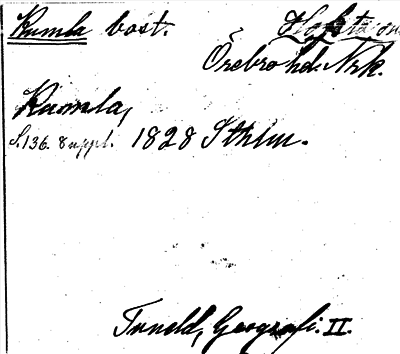 Rumla bost.
Örebro hd. Nrk.
Rumla,
s. 136. Suppl. 1828 Sthlm.
Tuneld, Geografi. II.